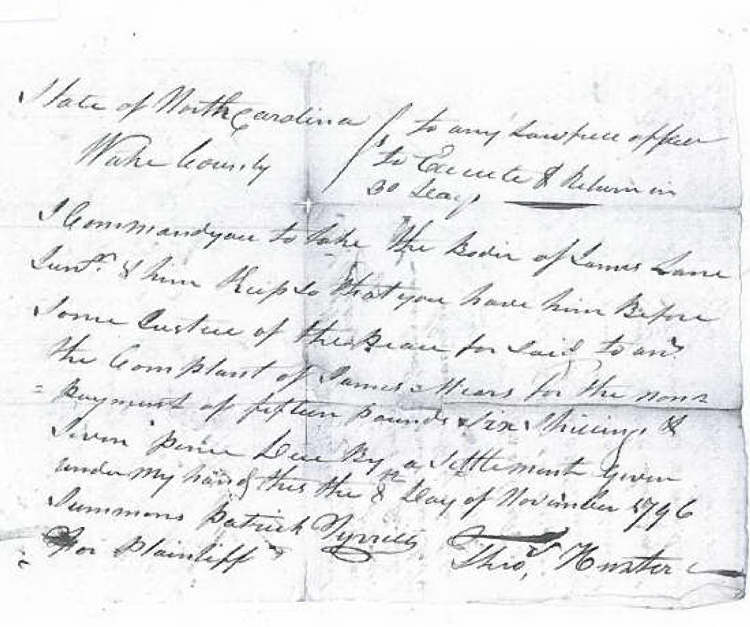 State of North Carolina
Wake County
to any Lawfull officer
to Execute & Return in
30 Days
I Command you to take the Bodie of James Lane
Junr. & him Keep so that you have him Before
Some Justice of the Peace for Said to ans
the Complant of James Mears for the none
payment of fifteen pounds & Six Shillings &
Seven pence Due By a Settlement Given
under my hand this the 8 Day of November 1796
Summons Patrick
for Plaintiff
Thos. Hunter